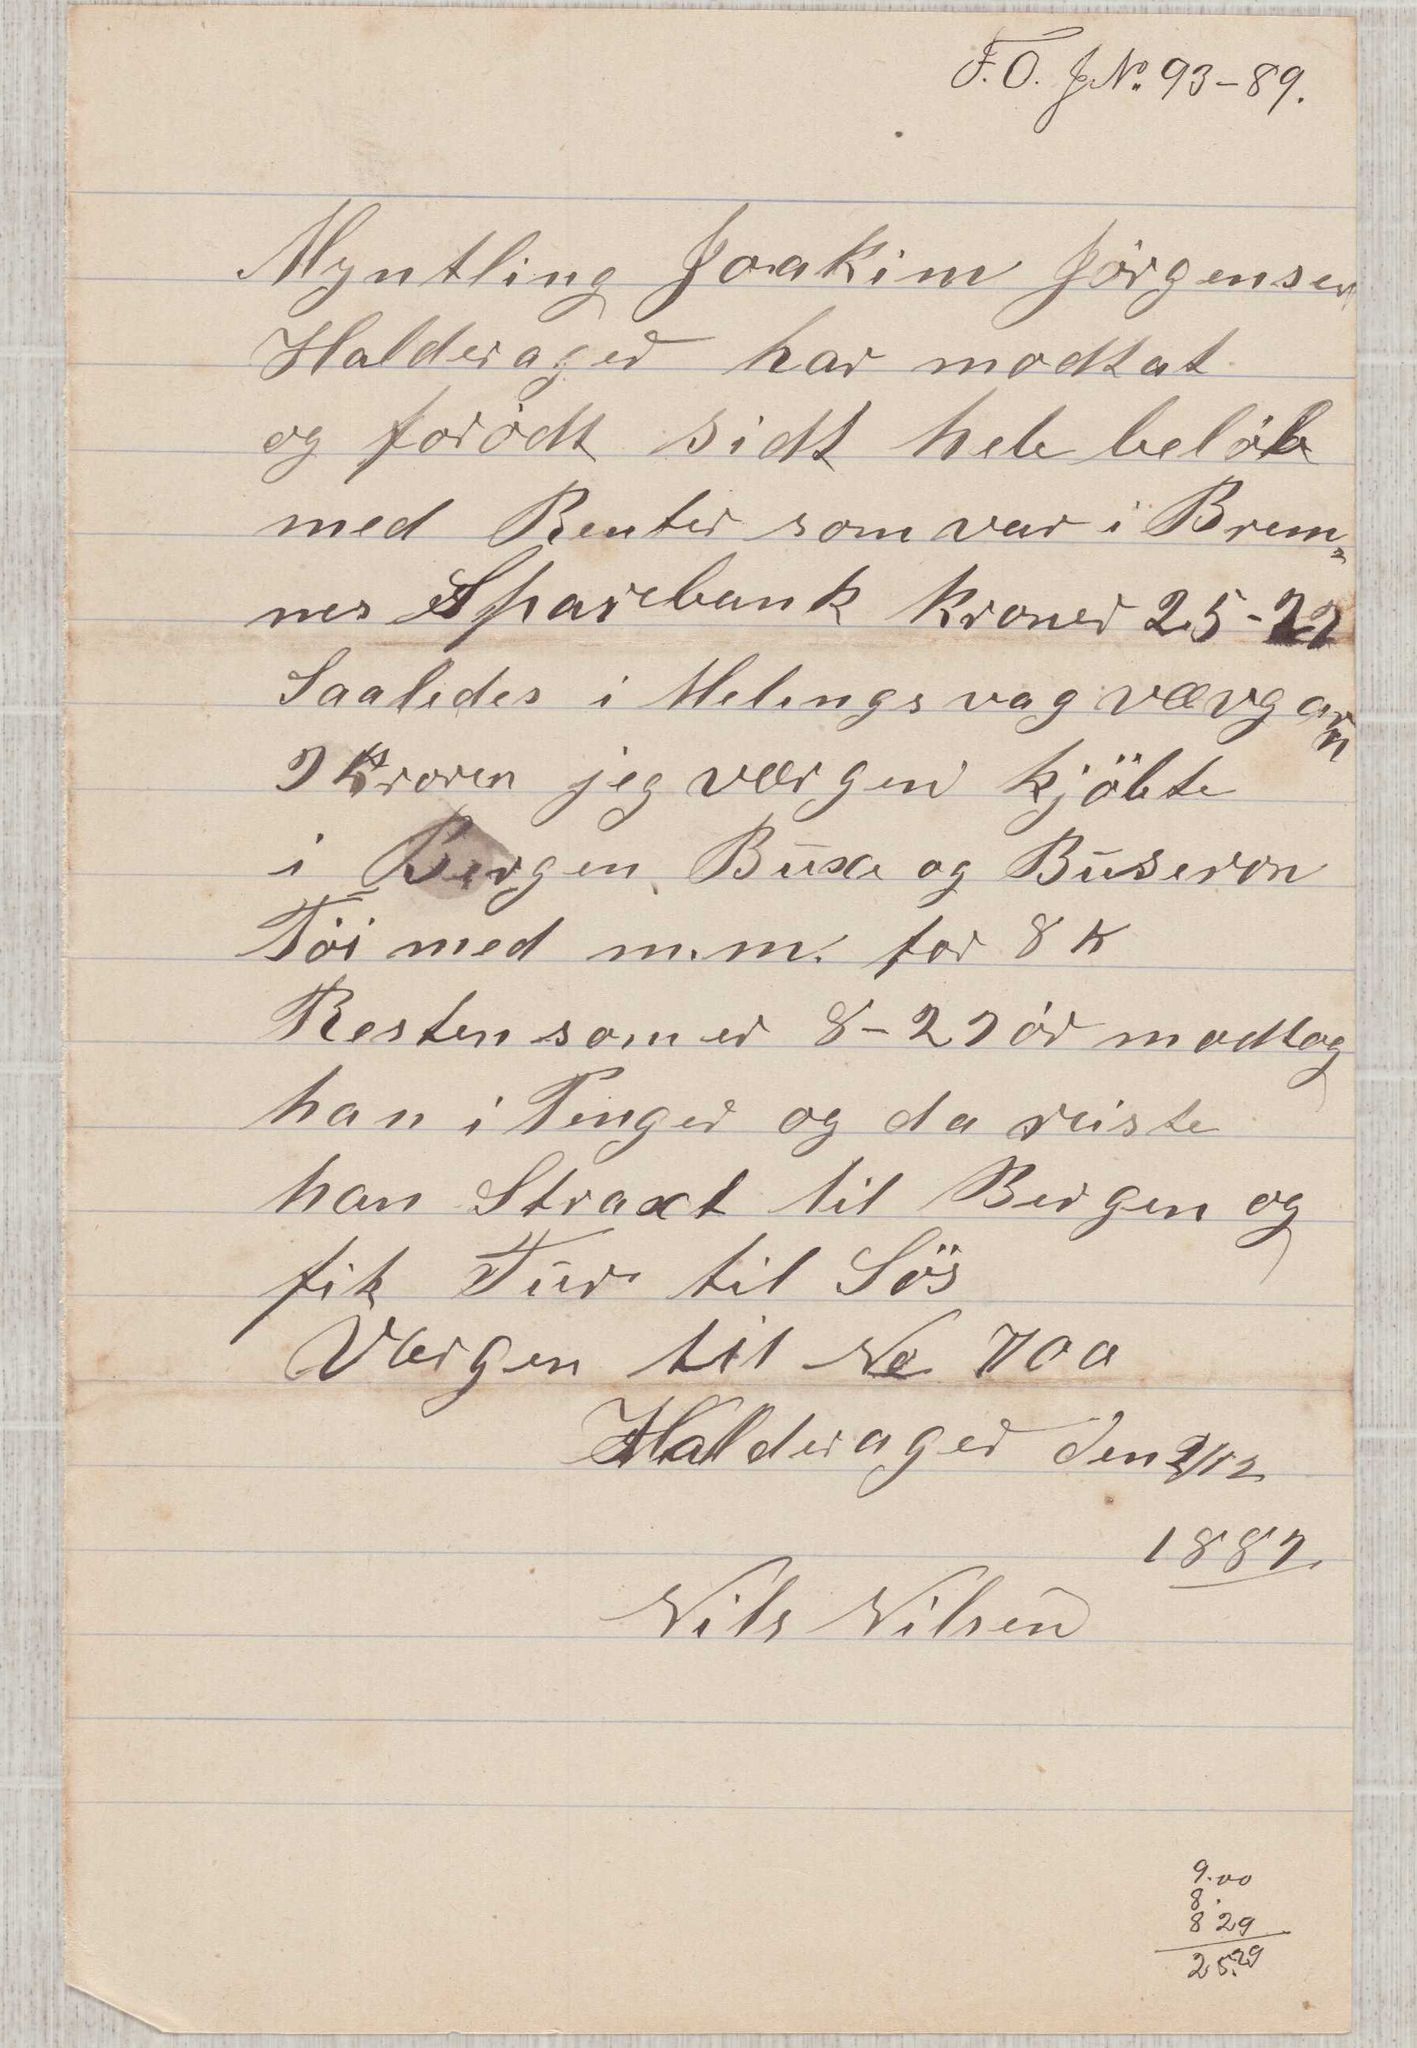 F.O. J.No. 93-89.
Myntling Joakim Jörgensen
Halderager har modtat
og forödt sidt hele belöb
med Renter som var i Brem=
nes Sparebank Kroner 25-29
Saaledes i Melingsvag vævgarn
9 Kroner jeg værgen kjöbte
i Bergen Buxe og Buseron
Töi med m.m. for 8 K
Resten som er 8-29 ör modtog
han i Penger og da reiste
han Straxt til Bergen og
fik Tur til Sös
Værgen til No
Halderager den 9/12
1889
Nils Nilsen
9.00
8.
8 29
25.29